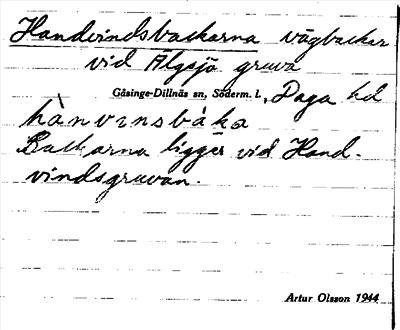 Handvindsbackarna vägbackar
vid Älgsjö gruva
Gåsinge-Dillnäs sn, Söderm. l., Daga hd
hànvinsbàka
Backarna ligger vid Hand-
vindsgruvan.
Artur Olsson 1944